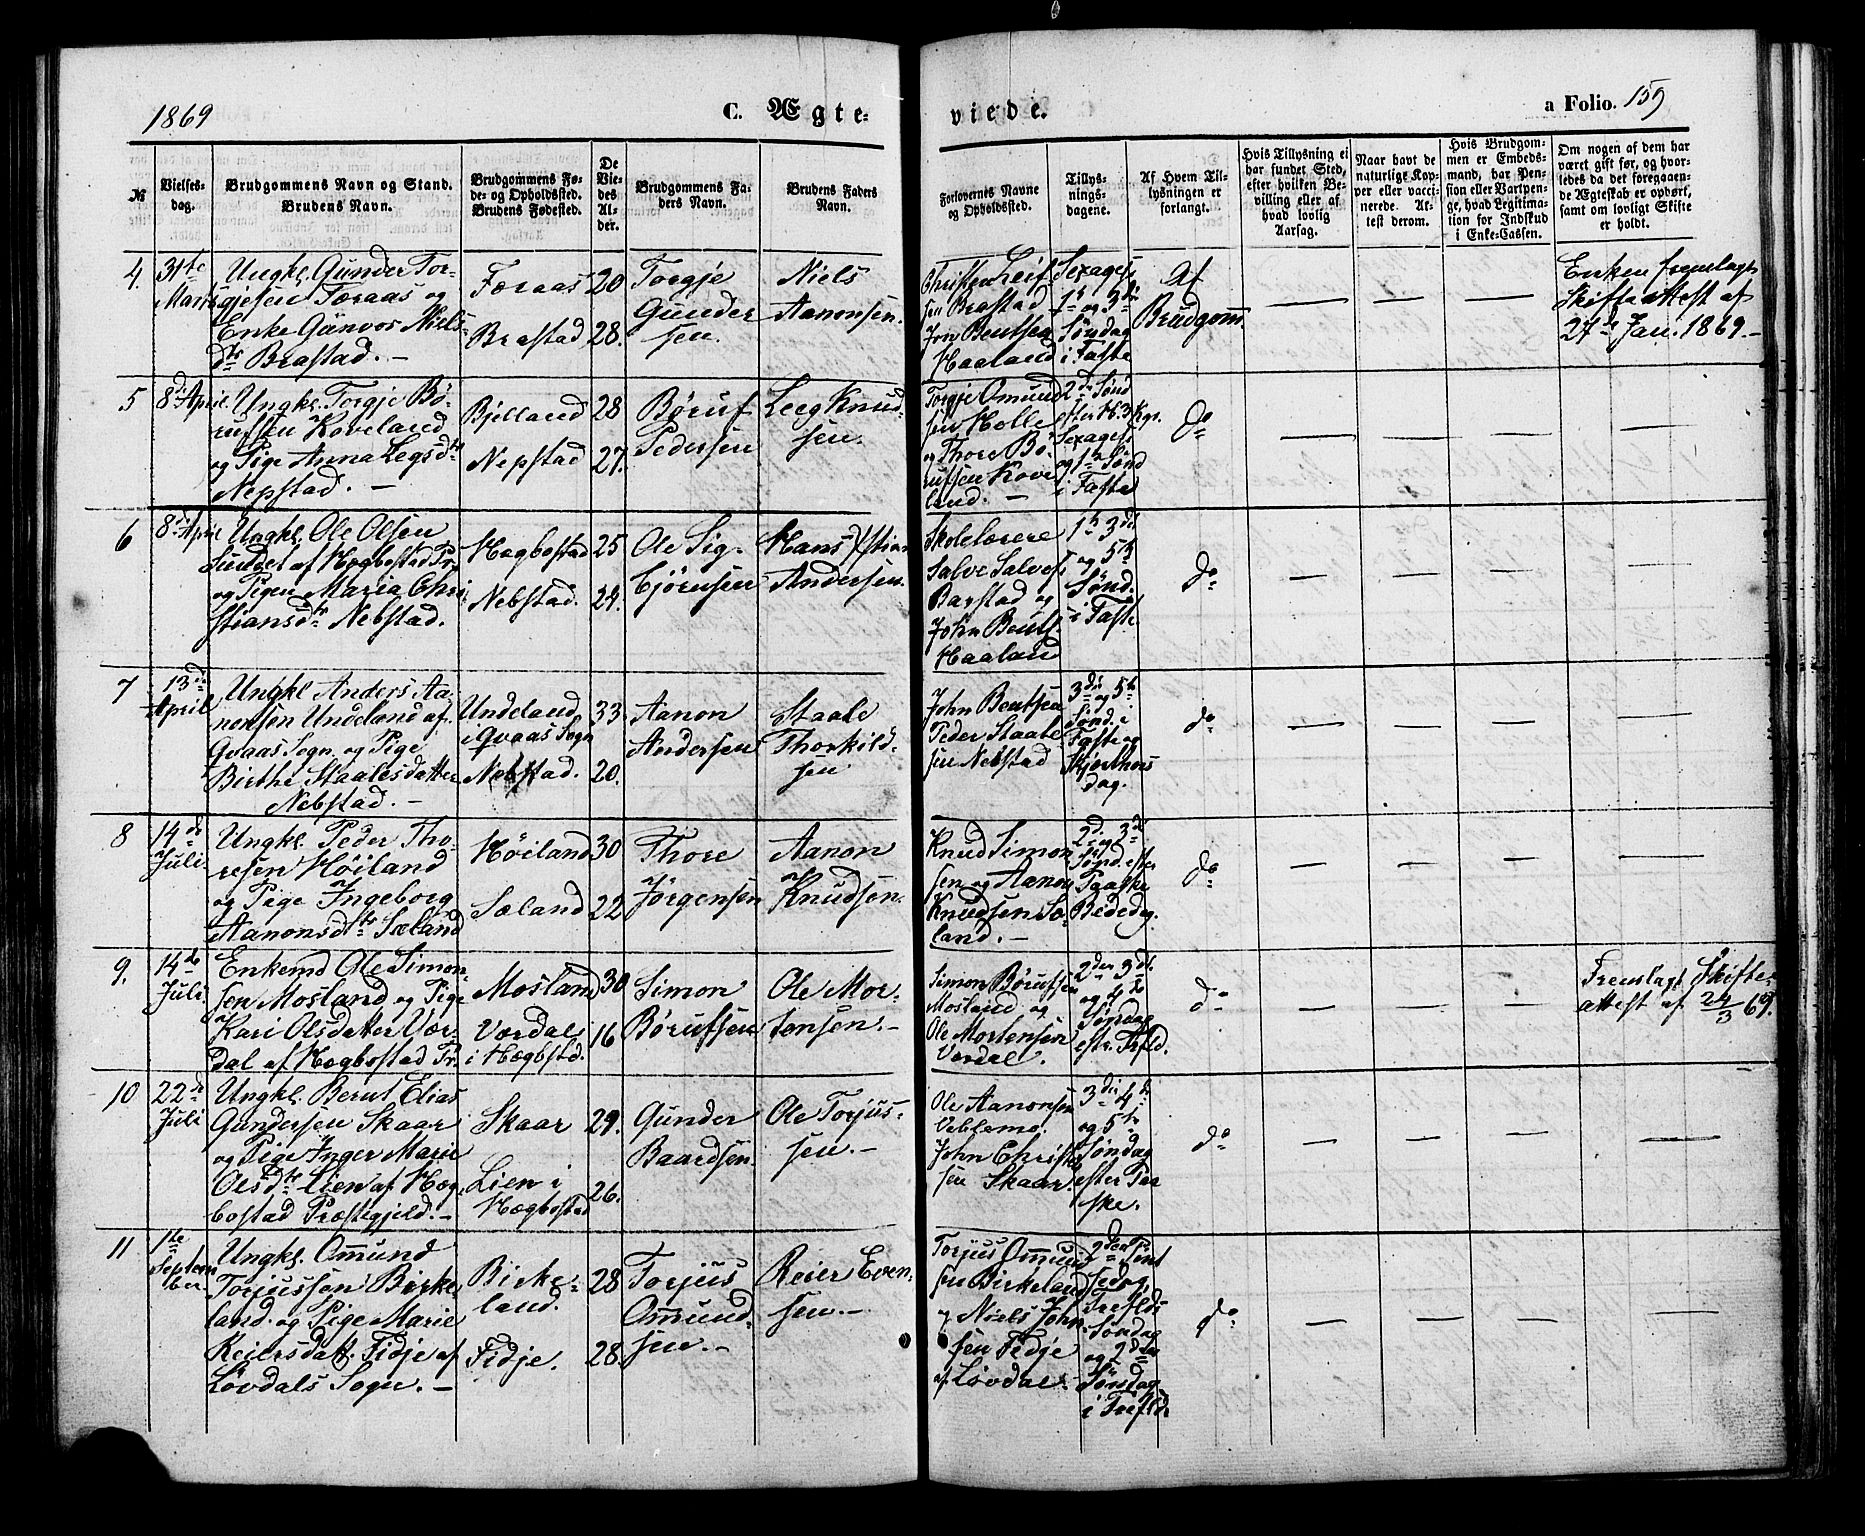 1869
C. Ægte-
viede.
a Folio. 159
№
Vielses-
dag.
Brudgommens Navn og Stand.
Brudens Navn.
Brudgommens Fø-
de- og Opholdssted.
Brudens Fødested.
De
Vie-
des
Al-
der.
Brudgommens Fa-
ders Navn.
Brudens Faders
Navn.
Forlovernes Navne
og Opholdssted.
Tillys-
nings-
dagene.
Af Hvem Til-
lysningen er
forlangt.
Hvis Tillysning ei
har fundet Sted,
efter hvilken Be-
villing eller af
hvad lovlig
Aarsag.
Naar havt de
naturlige Kop-
per eller vacci-
nerede. At-
test derom.
Hvis Brudgom-
men er Embeds-
mand, har Pen-
sion eller Vartpen-
ge, hvad Legitima-
tion for Indskud
i Enke-Cassen.
Om nogen af dem har
været gift før, og hvor-
ledes da det foregaaen-
de Ægteskab er ophørt,
samt om lovligt Skifte
er holdt.
4. 31te
Marts
Ungkl. Gunder Tor-
gjesen Føraas og
Enke Gunvor Niels-
dtr Brastad. –
Føraas 20
Brastad 28.
Torgje
Gunder
sen.
Niels
Aanonsen.
Christen Leif
sen Brastad
Jon Bentsen
Haaland
Sexages
1ste og 3die
Søndag
i Faste
Af
Brudgom.
— — —
Enken fremlagt
Skifteattest af
27de Jan. 1869. –
5 8d April.
Ungkl. Torgje Bø-
rufsen Koveland
og Pige Anna Legsdtr
Nepstad. –
Bjelland 28
Nepstad 27.
Børuf
Pedersen
Leeg Knud
sen.
Torgje Omund
sen Holle
og Thore Bø-
rufsen Kove
land. –
2de Sønd
efter H. 3 Kgr.
Sexages
og 1ste Sønd
i Faste
do
— — — —
6 8d April
Ungkl. Ole Olsen
Sundet af Hægbostad Pr.
og Pigen Maria Chri
stiansdtr Nebstad.
Hægbostad 25
Nebstad. 29.
Ole Sig-
bjørnsen
Hans Xstian
Andersen.
Skolelærere
Salve Salves
Barstad og
John Bents.
Haaland
1ste 3die
og 5te
Sønd.
i Faste.
do
— — — —
7 13de
April
Ungkl Anders Aa-
nensøn Undeland af
Qvaas Sogn. og Pige
Birthe Staalesdatter
Nebstad. –
Undeland
i Qvaas Sogn 33.
Nebstad. 20.
Aanon
Andersen
Staale
Thorkild-
sen
John Bentsen
Peder Staale
sen Nebstad
3die og 5te
Sønd. i
Faste og
Skjærthors
dag.
do
— — — —
8 14de
Juli
Ungkl. Peder Tho-
resen Høiland
og Pige Ingeborg
Aanonsdtr Sæland
Høiland 30
Sæland 22
Thore
Jørgensen
Aanon
Knudsen.
Knud Simon
sen og Aanon
Knudsen Sæ-
land. –
2d. og 3d.
Sønd. efter
Paaske
Bededag.
do
— — — —
9. 14de
Juli.
Enkemd Ole Simon-
sen Mosland og Pige
Kari Olsdatter Vær-
dal af Hægbostad Pr.
Mosland 30
Værdal
i Hægbstd. 16
Simon
Børufsen
Ole Mor-
tensen. –
Simon Børufsen
Mosland og
Ole Mortensen
Værdal.
2den 3die
og 4de
Søndag
eftr. Trefld.
do
— — —
Fremlagt Skifte-
attest af 24/3 69.
10 22de
Juli
Ungkl. Berut Elias
Gundersen Skaar
og Pige Inger Marie
Olsdtr Lien af Hæg-
bostad Præstegjeld. –
Skaar 29.
Lien i
Hægbostad 26.
Gunder
Baardsen.
Ole Torjus-
sen. –
Ole Aanonsen
Veblemo.
John Christ
sen Skaar
3die 4de
og 5te
Søndag
efter Paa
ske.
do
— — — —
11 1ste
Septem
ber
Ungkl. Omund
Torjussen Birke
land. og Pige Marie
Reiersdatt. Fidje af
Løvdals Sogn. –
Birke-
land. 28
Fidje. 28.
Torjus
Omund
sen. –
Reier Even-
sen. –
Torjus Omund
sen Birkeland
og Niels John
sen Fedje
af Løvdal.
2den Pint
sedag,
Treflds
Søndag
og 2den
Søndag
i Treflds
do
— — — —